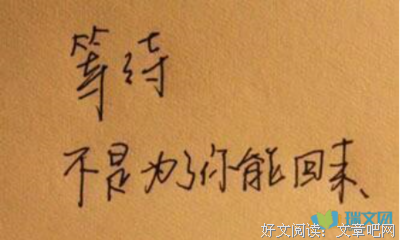 等待
不是为了你能回来、
瑞文网
好文阅读：文章吧网